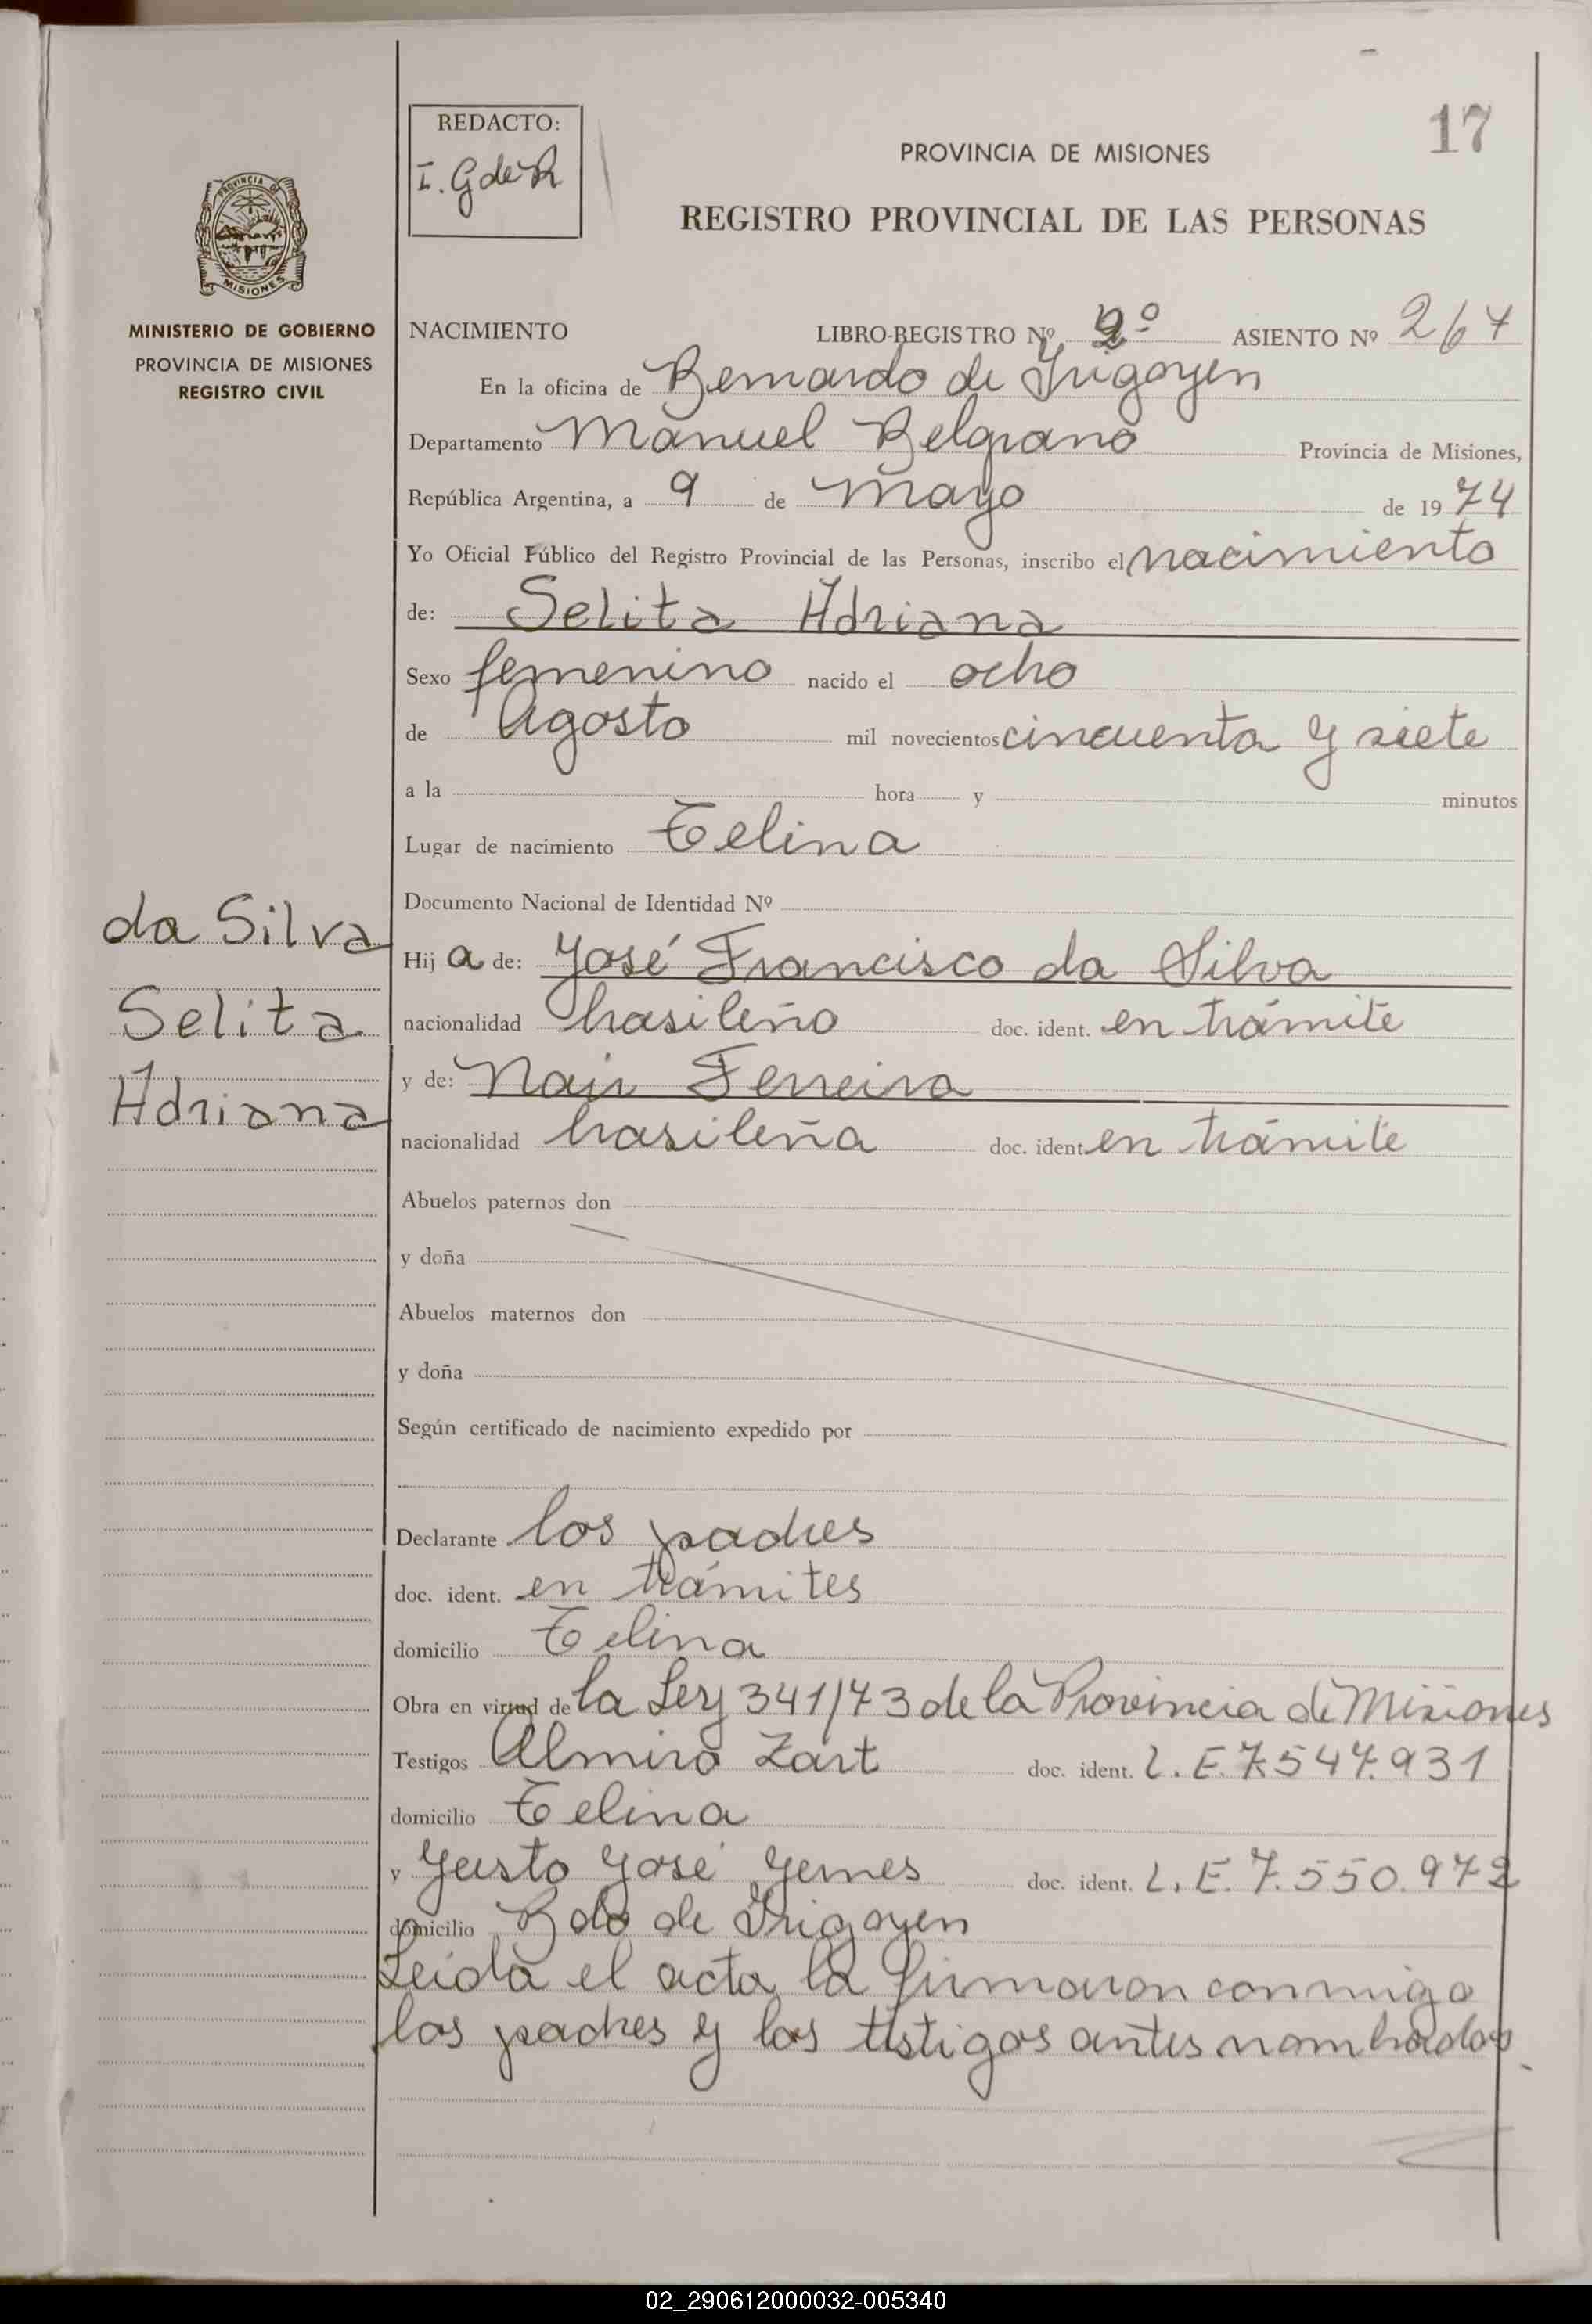 17
REDACTO:
I. G de R
PROVINCIA DE MISIONES
REGISTRO PROVINCIAL DE LAS PERSONAS
PROVINCIA DE
MISIONES
MINISTERIO DE GOBIERNO
PROVINCIA DE MISIONES
REGISTRO CIVIL
NACIMIENTO LIBRO-REGISTRO Nº 2º ASIENTO Nº 267
En la oficina de Bernardo de Irigoyen
Departamento Manuel Belgrano Provincia de Misiones,
República Argentina, a 9 de mayo de 1974
Yo Oficial Público del Registro Provincial de las Personas, inscribo el nacimiento
de: Selita Adriana
Sexo femenino nacido el ocho
de Agosto mil novecientos cincuenta y siete
a la hora y minutos
Lugar de nacimiento Celina
Documento Nacional de Identidad Nº
da Silva
Selita
Adriana
Hija de: José Francisco da Silva
nacionalidad brasileño doc. ident. en trámite
y de: Nair Ferreira
nacionalidad brasileña doc. ident. en trámite
Abuelos paternos don
y doña
Abuelos maternos don
y doña
Según certificado de nacimiento expedido por
Declarante los padres
doc. ident. en trámites
domicilio Celina
Obra en virtud de la Ley 341/73 de la Provincia de Misiones
Testigos Almiro Zart doc. ident. L. E. 7.547.931
domicilio Celina
y Justo José Jemes doc. ident. L. E. 7.550.972
domicilio Bdo de Irigoyen
Leida el acta la firmaron conmigo
los padres y los testigos antes nombrados
02_290612000032-005340